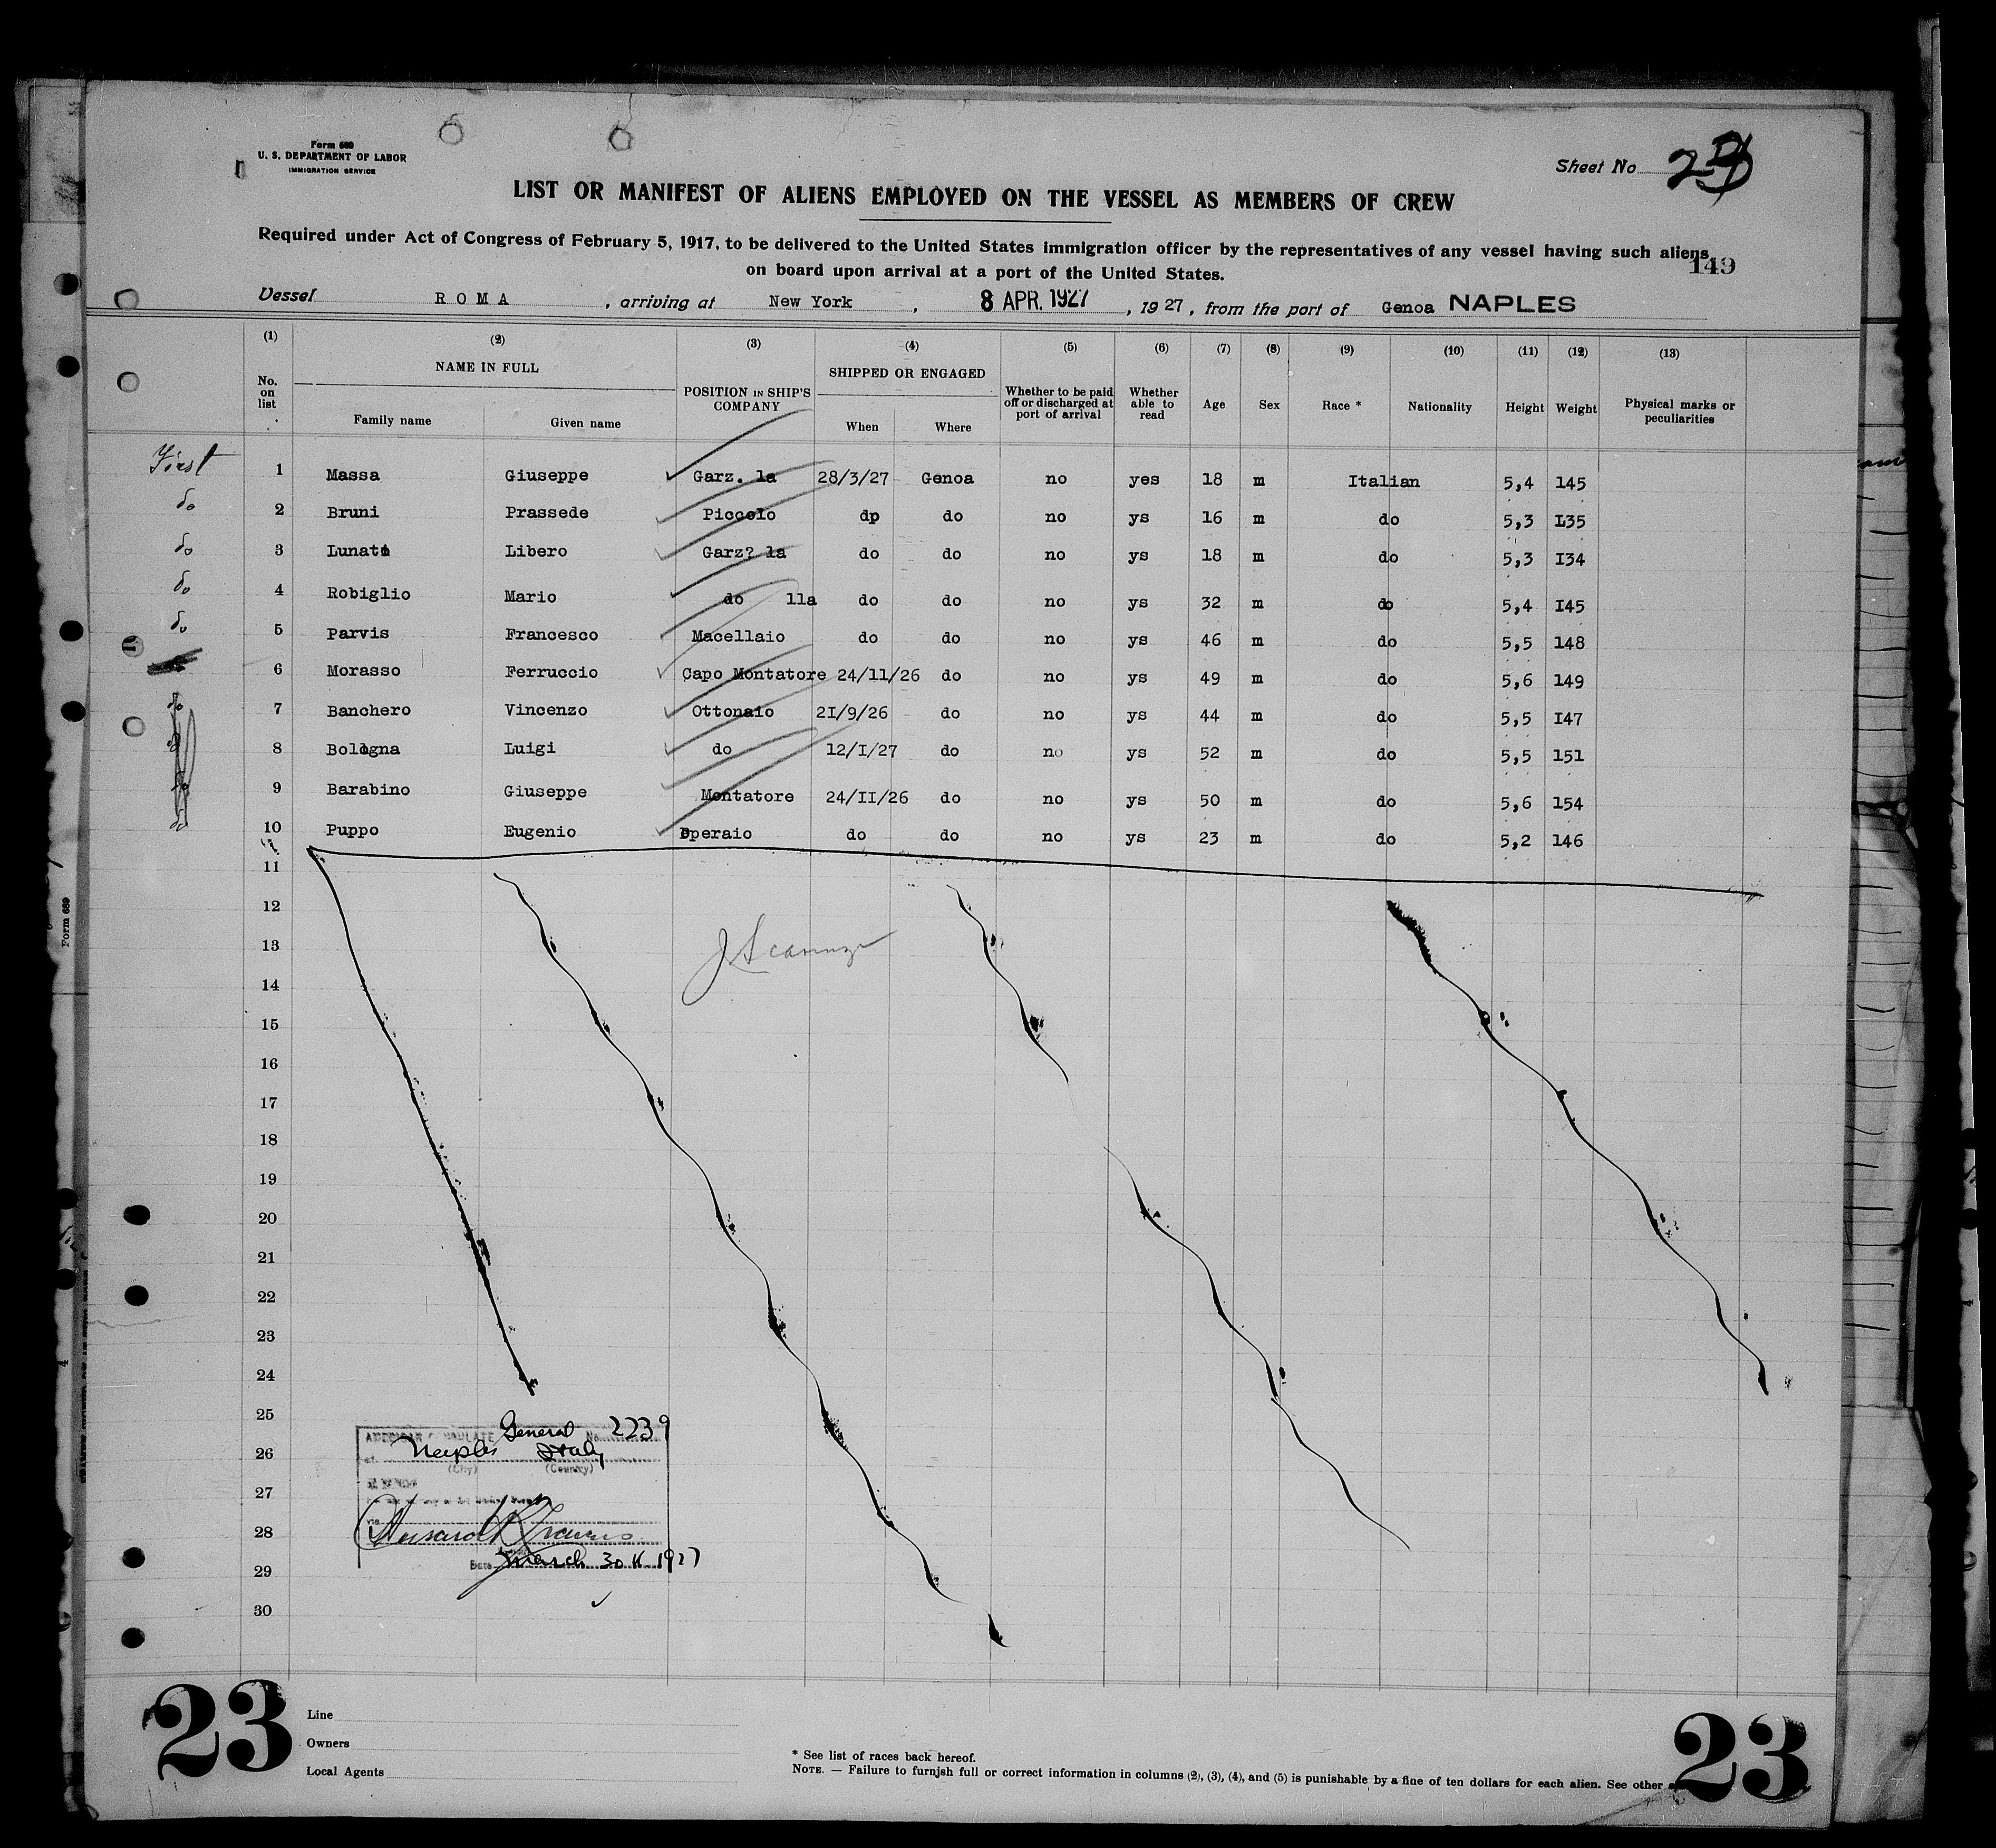 Form 689
U. S. DEPARTMENT OF LABOR
IMMIGRATION SERVICE
Sheet No 23
LIST OR MANIFEST OF ALIENS EMPLOYED ON THE VESSEL AS MEMBERS OF CREW
Required under Act of Congress of February 5, 1917, to be delivered to the United States immigration officer by the representatives of any vessel having such aliens
on board upon arrival at a port of the United States.
149
Vessel ROMA , arriving at New York , 8 APR. 1927 , 1927, from the port of Genoa NAPLES
(1) (2) (3) (4) (5) (6) (7) (8) (9) (10) (11) (12) (13)
No. on list NAME IN FULL Family name Given name POSITION IN SHIP'S COMPANY SHIPPED OR ENGAGED When Where Whether to be paid off or discharged at port of arrival Whether able to read Age Sex Race * Nationality Height Weight Physical marks or peculiarities
First 1 Massa Giuseppe Garz. la 28/3/27 Genoa no yes 18 m Italian 5,4 145
do 2 Bruni Prassede Piccolo dp do no ys 16 m do 5,3 I35
do 3 Lunati Libero Garz? la do do no ys 18 m do 5,3 I34
do 4 Robiglio Mario do lla do do no ys 32 m do 5,4 I45
do 5 Parvis Francesco Macellaio do do no ys 46 m do 5,5 148
6 Morasso Ferruccio Capo Montatore 24/11/26 do no ys 49 m do 5,6 149
do 7 Banchero Vincenzo Ottonaio 2I/9/26 do no ys 44 m do 5,5 I47
do 8 Bologna Luigi do 12/I/27 do no ys 52 m do 5,5 151
do 9 Barabino Giuseppe Montatore 24/II/26 do no ys 50 m do 5,6 154
do 10 Puppo Eugenio operaio do do no ys 23 m do 5,2 146
11
12
13
14
15
16
17
18
19
20
21
22
23
24
25
26
27
28
29
30
AMERICAN CONSULATE General No. 2239
at Naples Italy
(City) (Country)
Date March 30th 1927
23
Line
Owners
Local Agents
* See list of races back hereof.
NOTE. — Failure to furnish full or correct information in columns (2), (3), (4), and (5) is punishable by a fine of ten dollars for each alien. See other
23
Form 689